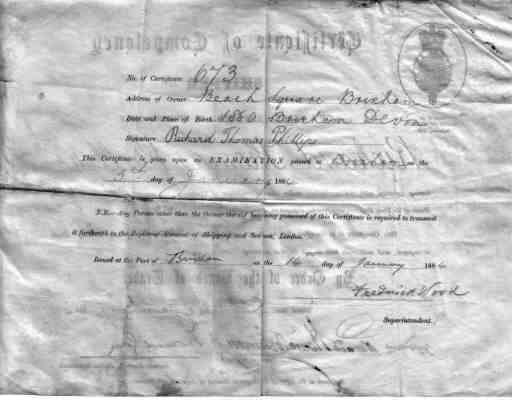 No. of Certificate 673
Address of Owner Beach Square Brixham
Date and Place of Birth 1860 Brixham Devon
Signature Richard Thomas Phillips
This Certificate is given upon an EXAMINATION passed at Brixham on the
5th day of January 1886
N.B.—Any Person other than the Owner thereof becoming possessed of this Certificate is required to transmit
it forthwith to the Registrar General of Shipping and Seamen, London.
Issued at the Port of Brixham on the 14 day of January 1886
Frederick Wood
Superintendent.